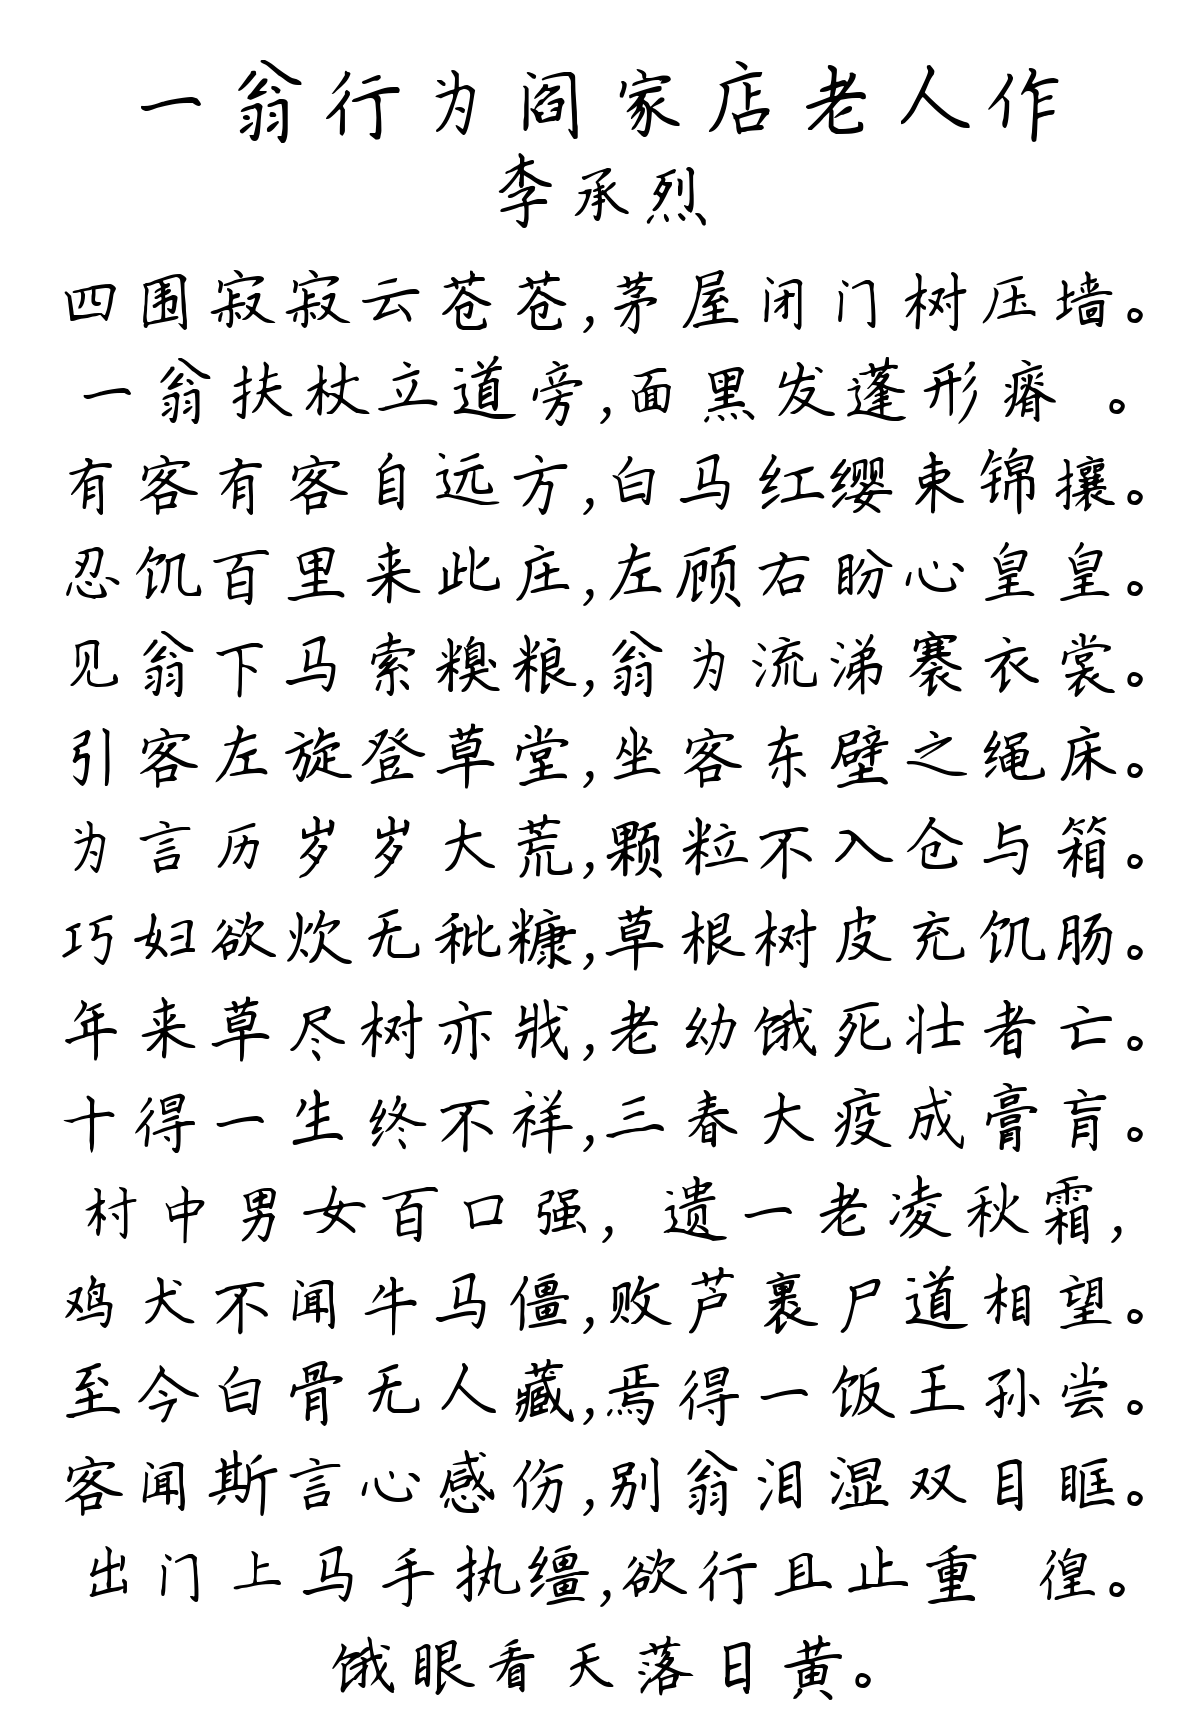 一翁行为阎家店老人作
李承烈
四围寂寂云苍苍,茅屋闭门树压墙。
一翁扶杖立道旁,面黑发蓬形瘠 。
有客有客自远方,白马红缨束锦攘。
忍饥百里来此庄,左顾右盼心皇皇。
见翁下马索糗粮,翁为流涕褰衣裳。
引客左旋登草堂,坐客东壁之绳床。
为言历岁岁大荒,颗粒不入仓与箱。
巧妇欲炊无秕糠,草根树皮充饥肠。
年来草尽树亦戕,老幼饿死壮者亡。
十得一生终不祥,三春大疫成膏肓。
村中男女百口强，遗一老凌秋霜，
鸡犬不闻牛马僵,败芦裹尸道相望。
至今白骨无人藏,焉得一饭王孙尝。
客闻斯言心感伤,别翁泪湿双目眶。
出门上马手执缰,欲行且止重 徨。
饿眼看天落日黄。